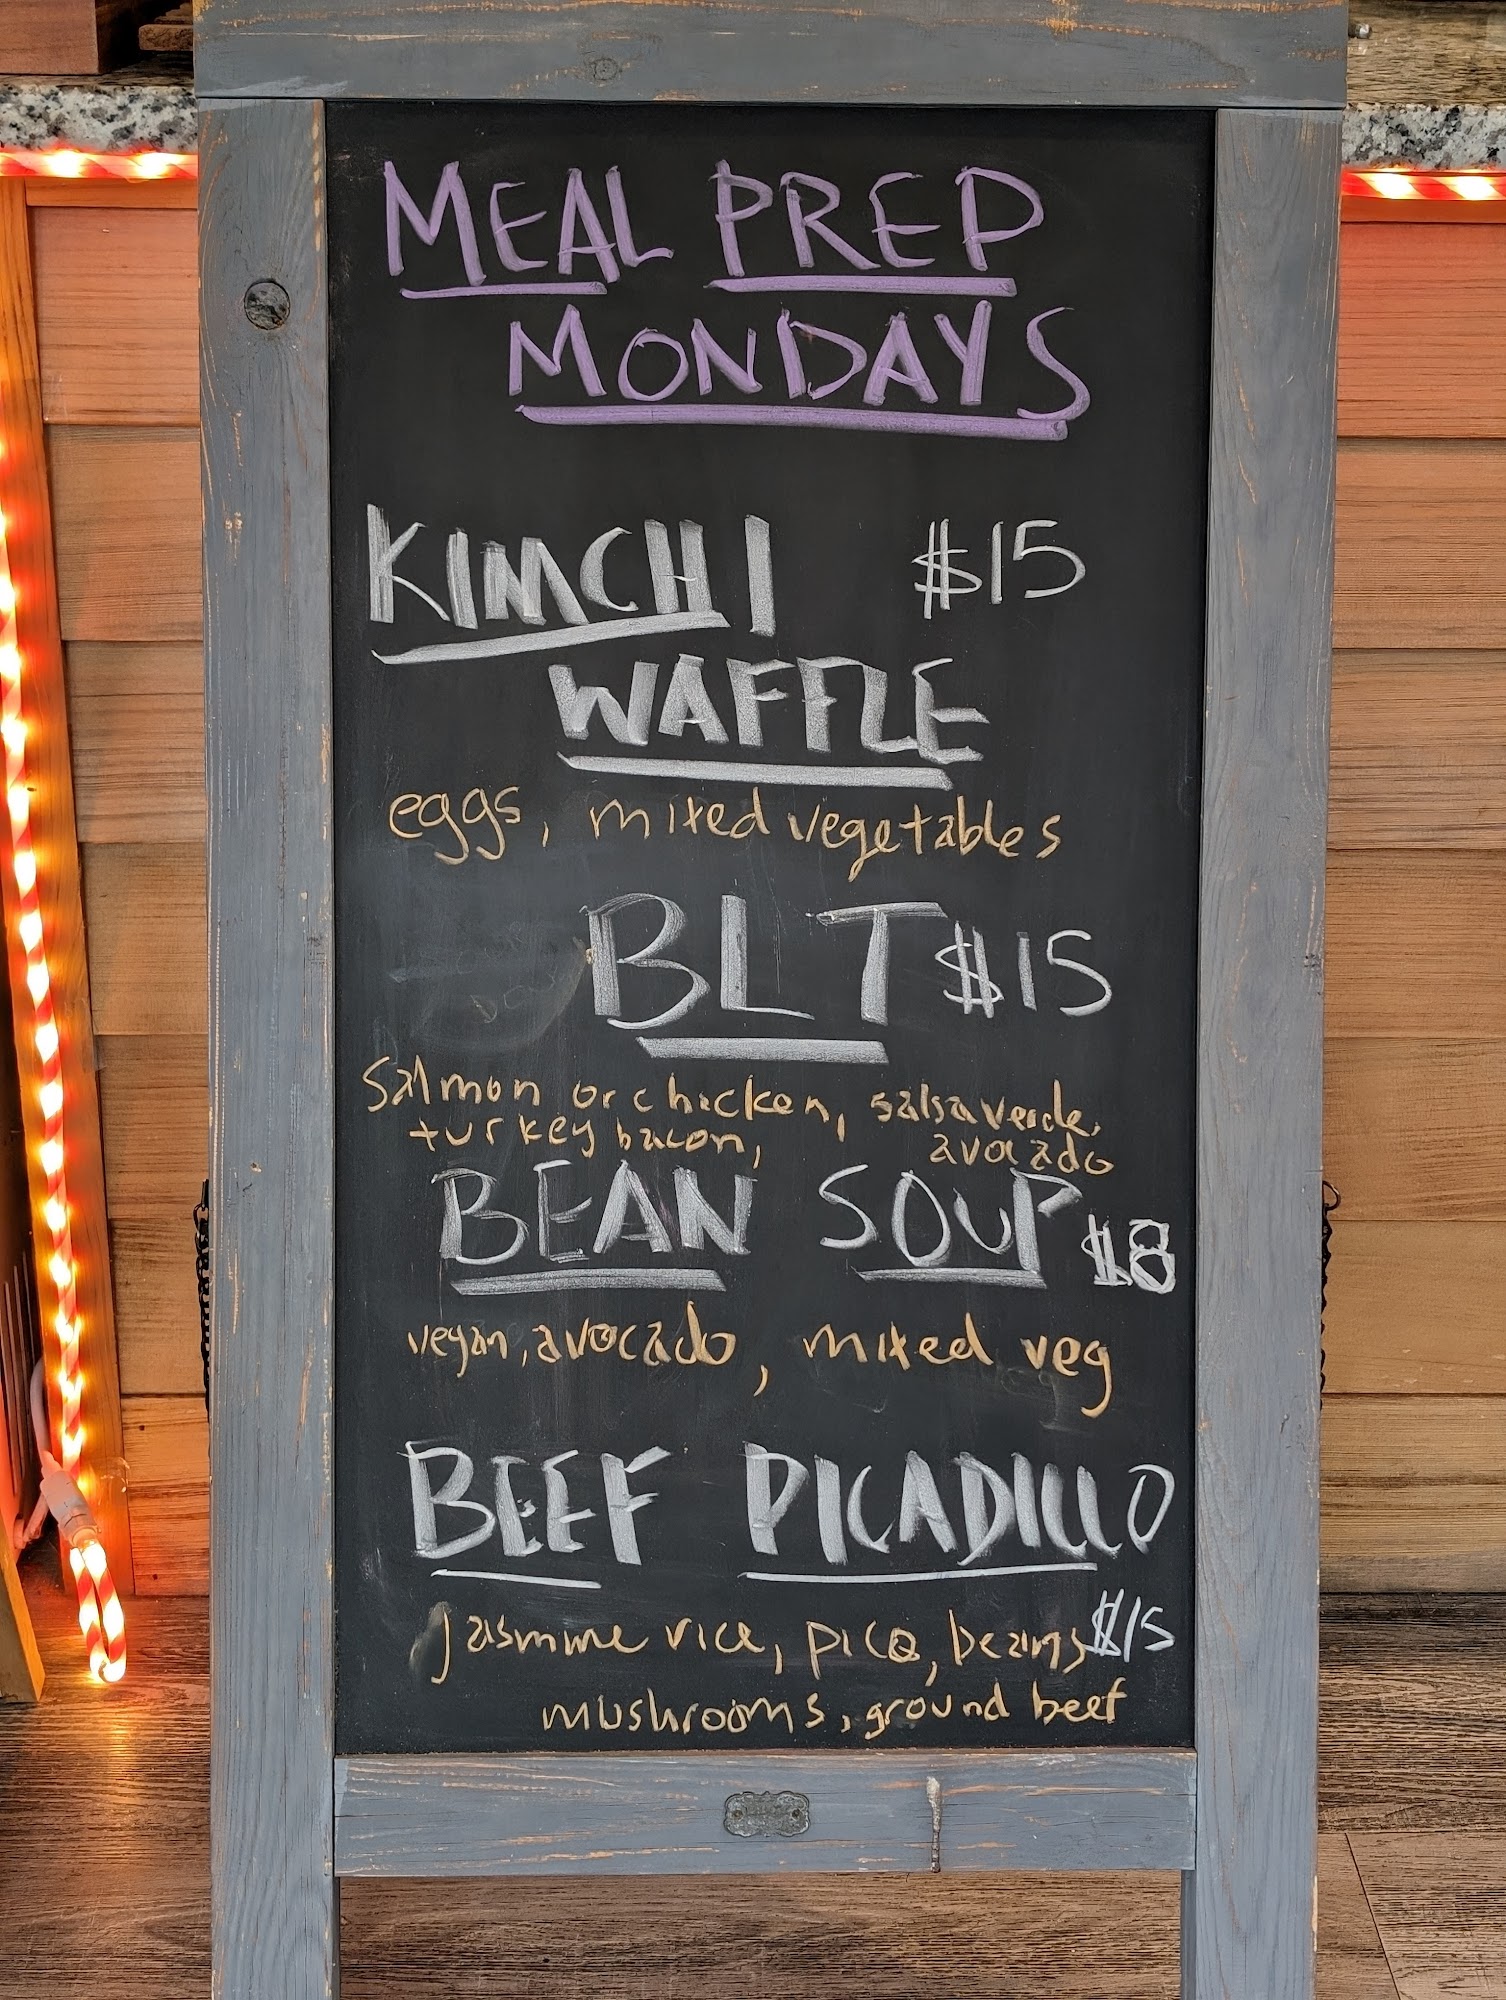 MEAL PREP
MONDAYS
KIMCHI $15
WAFFLE
eggs, mixed vegetables
BLT $15
Salmon or chicken, salsa verde,
turkey bacon, avocado
BEAN SOUP $8
vegan, avocado, mixed veg
BEEF PICADILLO
jasmine rice, pico, beans $15
mushrooms, ground beef